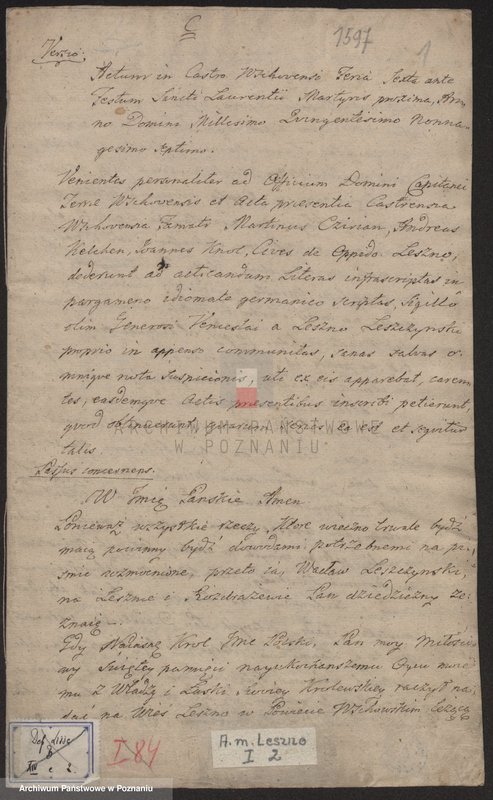 C
1597
1
Verso:
Actum in Castro Wschovensi Feria Sexta ante
Festum Sancti Laurentii Martyris proxima, An-
no Domini Millesimo Quingentesimo Nonna-
gesimo Septimo.
Venientes personaliter ad Officium Domini Capitanei
Terre Wschovensis et Acta presentia Castrensia
Wschovensia Famati Martinus Czirian, Andreas
Kelchen, Joannes Knol, Cives de Oppido Leszno,
dederunt ad acticandum Literas infrascriptas in
pargameno idiomate germanico scriptas, Sigillo
olim Generosi Venceslai a Leszno Leszczynski
proprio in appenso communitas, sanas salvas o-
mnique nota suspicionis, uti ex eis apparebat, caren-
tes, easdemque Actis presentibus inscribi petierunt,
quod obtinuerunt quarum tenor is est et sequitur
talis.
Passus concernens.
W Imię Panskie Amen
Ponieważ wszystkie rzeczy, które wieczno trwałe bydź
maią powinny bydź dowodami potrzebnemi na pi-
śmie wzmocnione, przeto ia, Wacław Leszczynski,
na Lesznie i Rozdrażewie Pan dziedziczny ze-
znaię
Gdy Naiaśn. Krol Jmc Polski, Pan moy Miłości-
wy Swiętey pamięci nayukochanszemu Oycu moie-
mu z Władzy i Łaski swoiey Krolewskiey raczył na-
dać na Wieś Leszno w Powiecie Wschowskim leżącą
ARCHIWUM PAŃSTWOWE
W POZNANIU
I 84
A.m. Leszno
I 2
Archiwum Państwowe w Poznaniu